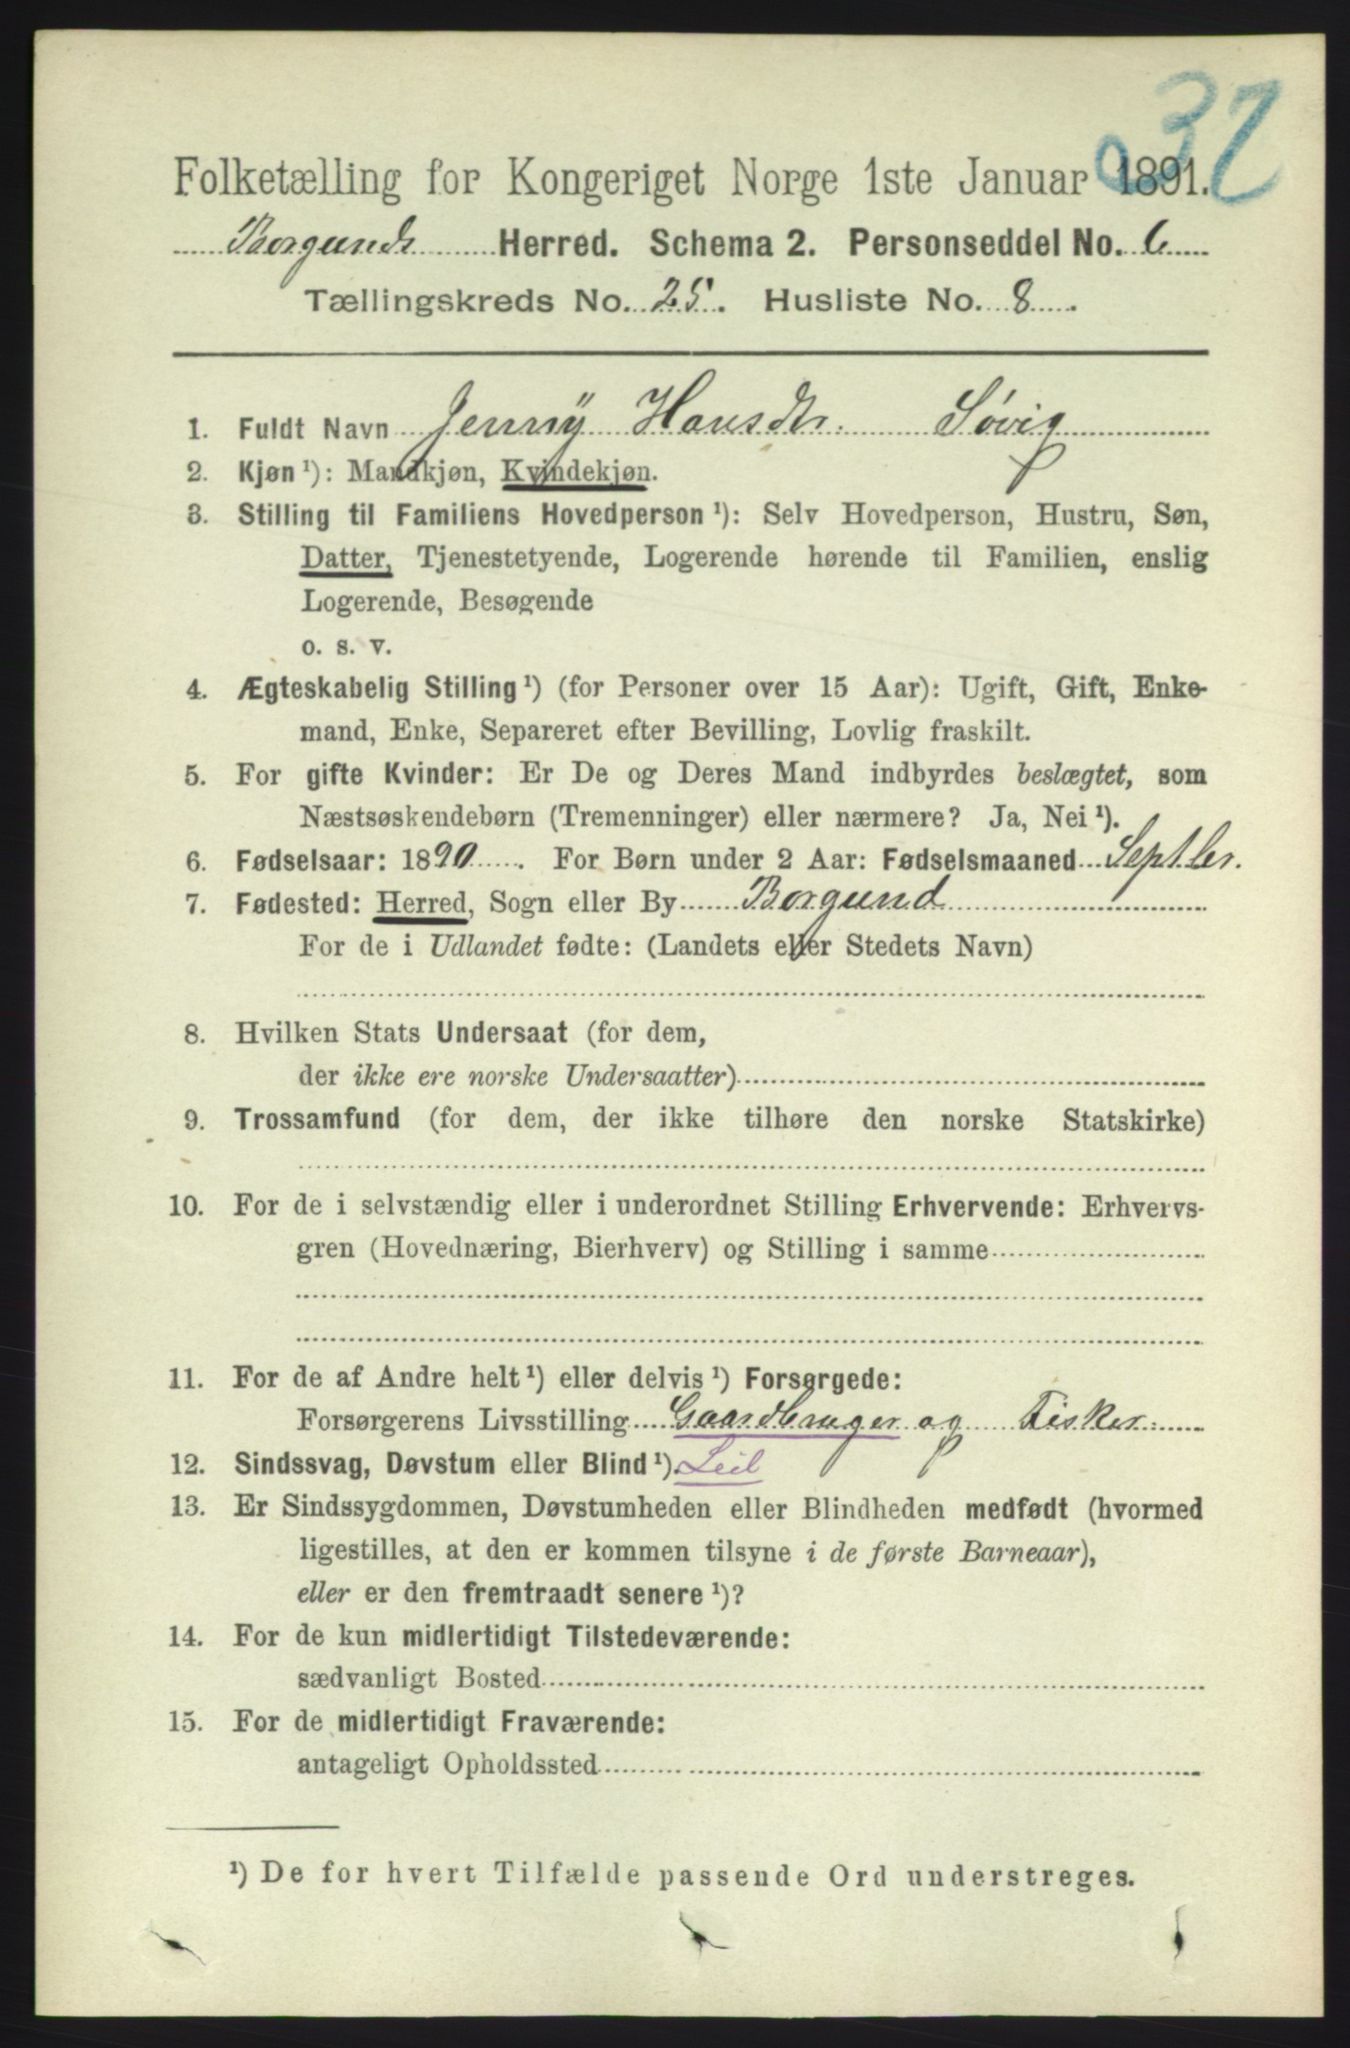 032
Folketælling for Kongeriget Norge 1ste Januar 1891.
Borgunds Herred. Schema 2. Personseddel No. 6
Tællingskreds No. 25. Husliste No. 8.
1. Fuldt Navn Jenny Hansdtr. Søvig
2. Kjøn ¹): Mandkjøn, Kvindekjøn.
3. Stilling til Familiens Hovedperson ¹): Selv Hovedperson, Hustru, Søn,
Datter, Tjenestetyende, Logerende hørende til Familien, enslig
Logerende, Besøgende
o. s. v.
4. Ægteskabelig Stilling ¹) (for Personer over 15 Aar): Ugift, Gift, Enke-
mand, Enke, Separeret efter Bevilling, Lovlig fraskilt.
5. For gifte Kvinder: Er De og Deres Mand indbyrdes beslægtet, som
Næstsøskendebørn (Tremenninger) eller nærmere? Ja, Nei ¹).
6. Fødselsaar: 1890. For Børn under 2 Aar: Fødselsmaaned Septbr.
7. Fødested: Herred, Sogn eller By Borgund
For de i Udlandet fødte: (Landets eller Stedets Navn)
8. Hvilken Stats Undersaat (for dem,
der ikke ere norske Undersaatter)
9. Trossamfund (for dem, der ikke tilhøre den norske Statskirke)
10. For de i selvstændig eller i underordnet Stilling Erhvervende: Erhvervs-
gren (Hovednæring, Bierhverv) og Stilling i samme
11. For de af Andre helt ¹) eller delvis ¹) Forsørgede:
Forsørgerens Livsstilling Gaardbruger og Fisker.
12. Sindssvag, Døvstum eller Blind ¹). Leil
13. Er Sindssygdommen, Døvstumheden eller Blindheden medfødt (hvormed
ligestilles, at den er kommen tilsyne i de første Barneaar),
eller er den fremtraadt senere ¹)?
14. For de kun midlertidigt Tilstedeværende:
sædvanligt Bosted
15. For de midlertidigt Fraværende:
antageligt Opholdssted
¹) De for hvert Tilfælde passende Ord understreges.